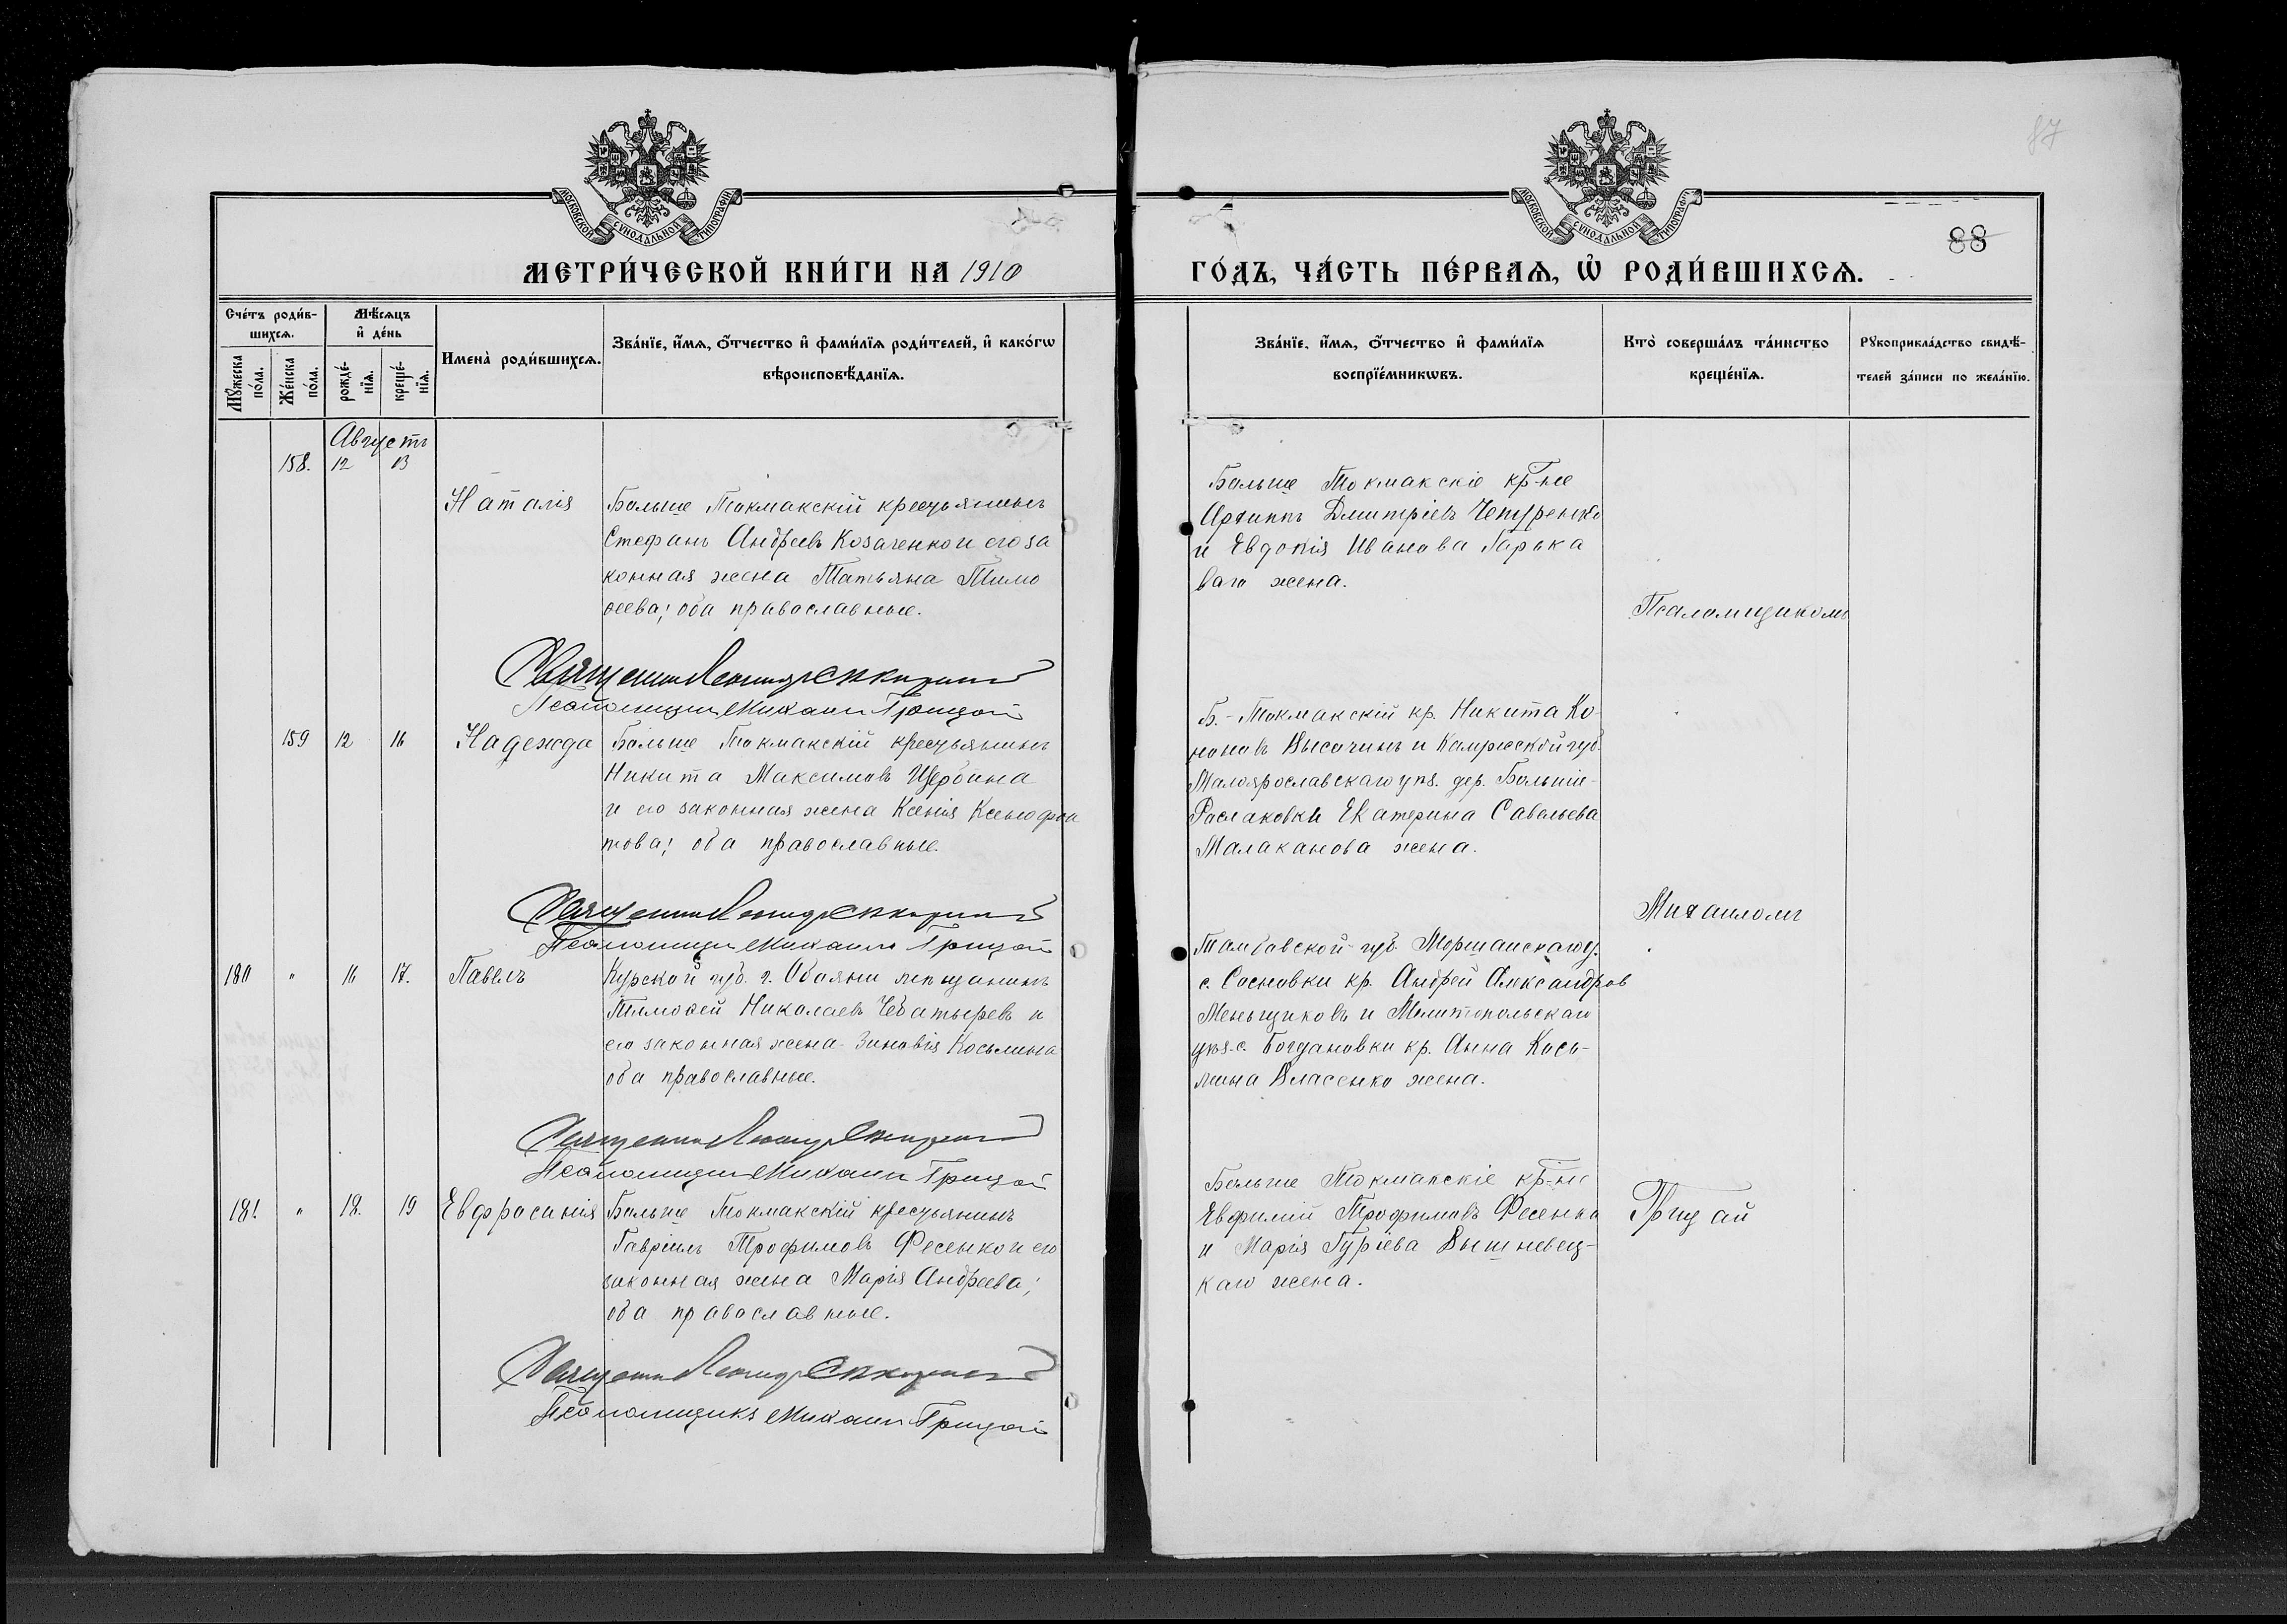 87
88
МОСКОВСКОЙ СѴНОДАЛЬНОЙ ТИПОГРАФІИ
МОСКОВСКОЙ СѴНОДАЛЬНОЙ ТИПОГРАФІИ
МЕТРИ́ЧЕСКОЙ КНИ́ГИ НА 1910
ГО́ДЪ, ЧА́СТЬ ПЕ́РВАѦ, Ѡ҆ РОДИ́ВШИХСѦ.
Сче́тъ роди́в-
шихсѧ.
Мꙋ́жеска
по́ла.
Же́нска
по́ла.
Мѣ́сѧцъ
и҆ де́нь
рожде́-
нїѧ.
креще́-
нїѧ.
Имена̀ роди́вшихсѧ.
Зва́нїе, и҆́мѧ, ѻ҆́тчество и҆ фами́лїѧ роди́телей, и҆ како́гѡ
вѣроисповѣ́данїѧ.
Зва́нїе, и҆́мѧ, ѻ҆́тчество и҆ фами́лїѧ
воспрїе́мникѡвъ.
Кто̀ соверша́лъ та́инство
креще́нїѧ.
Рꙋкоприкла́дство свидѣ́-
телей за́писи по жела́нїю.
Августъ
158. 12 13
Наталія
Больше Токмакскій крестьянинъ
Стефанъ Андреевъ Козаченко и его за
конная жена Татьяна Тимо
ѳеева; оба православные.
Священникъ Леонидъ
Псаломщикъ Михаилъ Грицай
Больше Токмакскіе кр-не
Архиппъ Димитріевъ Чепуренко
и Евдокія Иванова Гарька
ваго жена.
Псаломщикомъ
159 12 16
Надежда
Больше Токмакскій крестьянинъ
Никита Максимовъ Щербина
и его законная жена Ксенія Ксенофон
това; оба православные.
Священникъ Леонидъ
Псаломщикъ Михаилъ Грицай
Б.-Токмакскій кр. Никита Ко-
ноновъ Высочинъ и Калужской губ.
Малоярославскаго уѣз. дер. Большіе-
Рослаковки Екатерина Савельева
Малаканова жена.
Михаиломъ
180 " 16 17.
Павелъ
Курской губ. г. Обояни мѣщанинъ
Тимоѳей Николаевъ Чебатыревъ и
его законная жена Зиновія Косьмина
оба православные.
Священникъ Леонидъ
Псаломщикъ Михаилъ Грицай
Тамбовской губ. Моршанскаго у.
с. Сосновки кр. Андрей Александров
Меньщиковъ и Мелитопольскаго
уѣз. с. Богдановки кр. Анна Кось-
мина Власенко жена.
181 " 18. 19
Евфросинія
Больше Токмакскій крестьянинъ
Гавріилъ Трофимовъ Фесенко и его
законная жена Марія Андреева;
оба православные.
Священникъ Леонидъ
Псаломщикъ Михаилъ Грицай
Больше Токмакскіе кр-не
Евфимій Трофимовъ Фесенко
и Марія Гуріева Вышневец-
каго жена.
Грицай